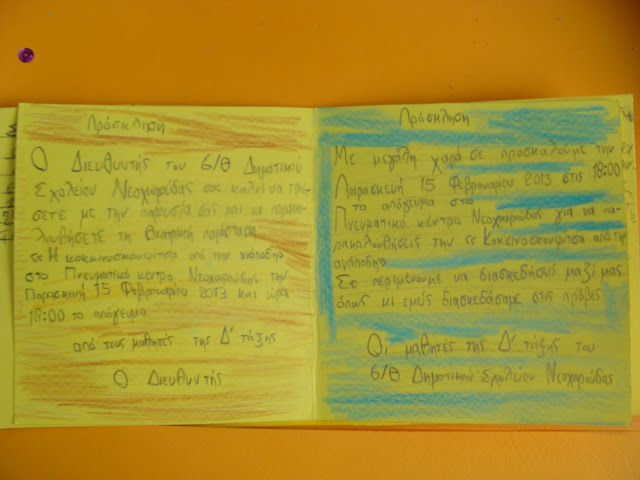 Πρόσκληση
Ο Διευθυντής του 6/Θ Δημοτικού
Σχολείου Νεοχωρούδας σας καλεί να τιμή-
σετε με την παρουσία σας και να παρακο-
λουθήσετε τη θεατρική παράσταση
«Η κοκκινοσκουφίτσα από την ανάποδη»
στο Πνευματικό κέντρο Νεοχωρούδης την
Παρασκευή 15 Φεβρουαρίου 2013 και ώρα
18:00 το απόγευμα
από τους μαθητές της Δ΄ τάξης
Ο Διευθυντής
Πρόσκληση
Με μεγάλη χαρά σε προσκαλουμε την
Παρασκευή 15 Φεβρουαρίου 2013 στις 18:00
το απόγευμα στο
Πνευματικό κέντρο Νεοχωρούδας για να πα-
ρακολουθήσεις την «Κοκκινοσκουφίτσα από την
ανάποδη»
Σε περιμένουμε να διασκεδάσεις μαζί μας
όπως κι εμείς διασκεδάσαμε στις πρόβες
Οι μαθητές της Δ΄ τάξης του
6/Θ Δημοτικού Σχολείου Νεοχωρούδας